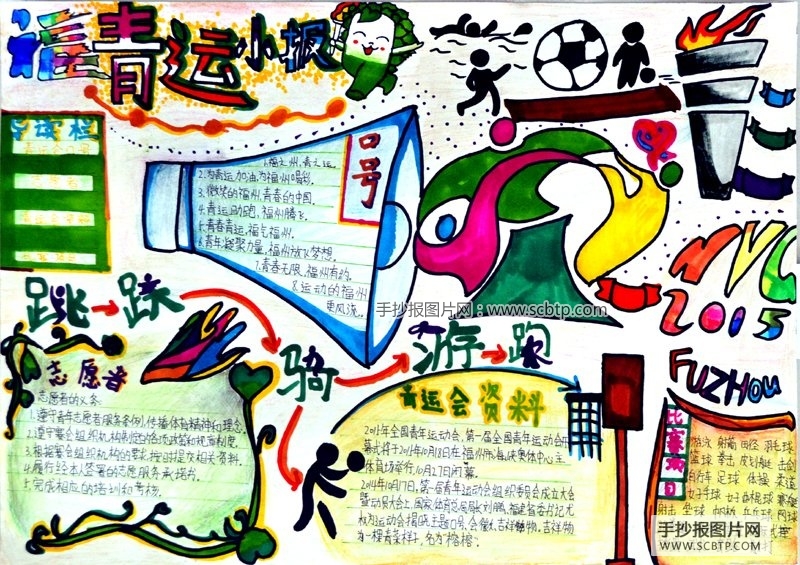 福青运小报
导读栏
口号
1.福之州,青之运。
2.为青运加油,为福州喝彩。
3.微笑的福州,青春的中国。
4.青运助跑,福州腾飞。
5.青春青运,福气福州。
6.青年凝聚力量,福州放飞梦想。
7.青春无限,福州有约。
8.运动的福州
更风流。
手抄报图片网:www.scbtp.com
NYG
2015
跳→跃
骑
游→跑
志愿者
志愿者的义务:
1.遵守青年志愿者服务条例,传播体育精神和理念。
2.遵守赛会组织机构制定的各项政策和规章制度。
3.根据赛会组织机构的要求,按时提交相关资料。
4.履行经本人签署的志愿服务承诺书。
5.完成相应的培训和考核。
青运会资料
2014年全国青年运动会,第一届全国青年运动会开
幕式将于2014年10月18日在福州市海峡奥体中心主
体育场举行,10月27日闭幕。
2014年10月17日,第一届青年运动会组织委员会成立大会
暨动员大会上,国家体育总局局长刘鹏、福建省委书记尤
权为运动会揭晓主题口号、会徽和吉祥物。吉祥物
为一棵青菜样子,名为“榕榕”。
FUZHOU
比赛项目
游泳 射箭 田径 羽毛球
篮球 拳击 皮划艇 击剑
自行车 足球 体操 柔道
女子手球 女子曲棍球 赛艇
射击 垒球 帆船 乒乓球 网球
手抄报图片网
WWW.SCBTP.COM